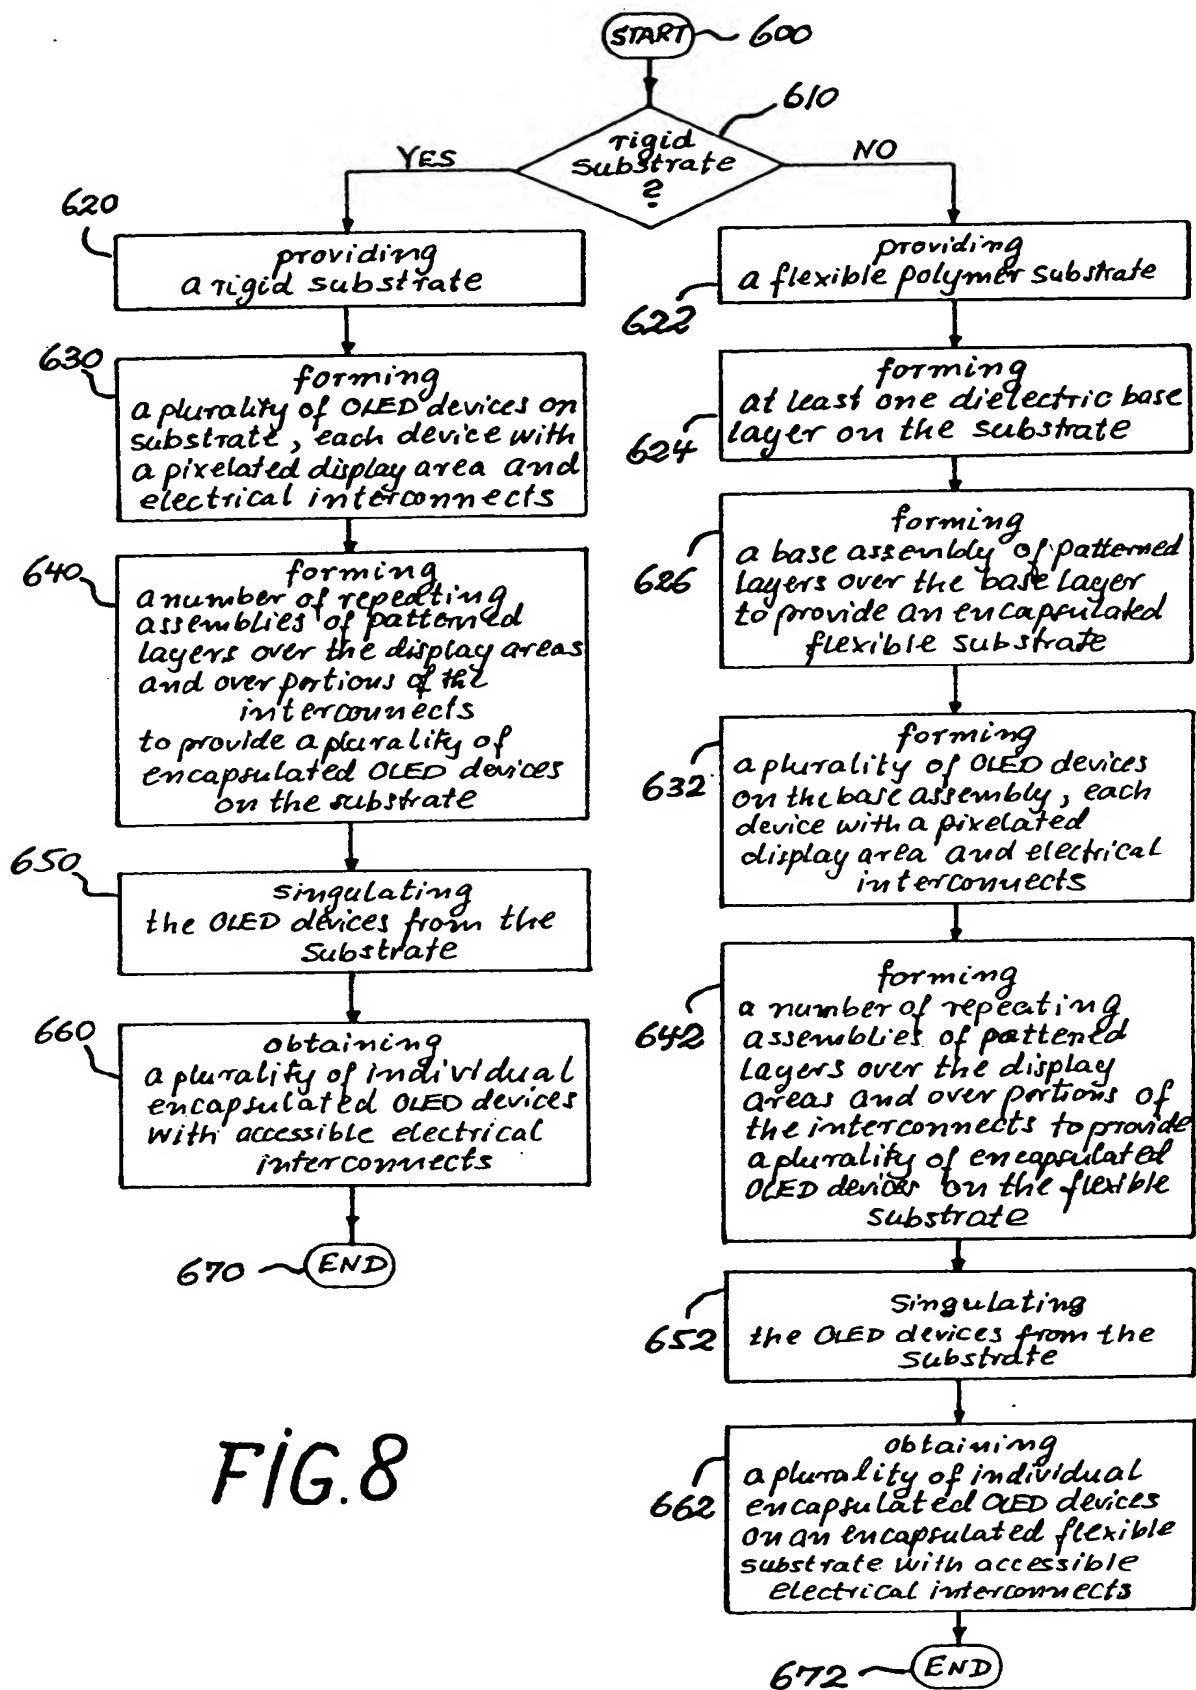 START
600
610
rigid
substrate
?
YES
NO
620
providing
a rigid substrate
630
forming
a plurality of OLED devices on
substrate, each device with
a pixelated display area and
electrical interconnects
640
forming
a number of repeating
assemblies of patterned
layers over the display areas
and over portions of the
interconnects
to provide a plurality of
encapsulated OLED devices
on the substrate
650
singulating
the OLED devices from the
substrate
660
obtaining
a plurality of individual
encapsulated OLED devices
with accessible electrical
interconnects
670
END
providing
a flexible polymer substrate
622
forming
at least one dielectric base
layer on the substrate
624
forming
a base assembly of patterned
layers over the base layer
to provide an encapsulated
flexible substrate
626
forming
a plurality of OLED devices
on the base assembly, each
device with a pixelated
display area and electrical
interconnects
632
forming
a number of repeating
assemblies of pattened
layers over the display
areas and over portions of
the interconnects to provide
a plurality of encapsulated
OLED devices on the flexible
substrate
642
Singulating
the OLED devices from the
substrate
652
obtaining
a plurality of individual
encapsulated OLED devices
on an encapsulated flexible
substrate with accessible
electrical interconnects
662
672
END
FIG.8